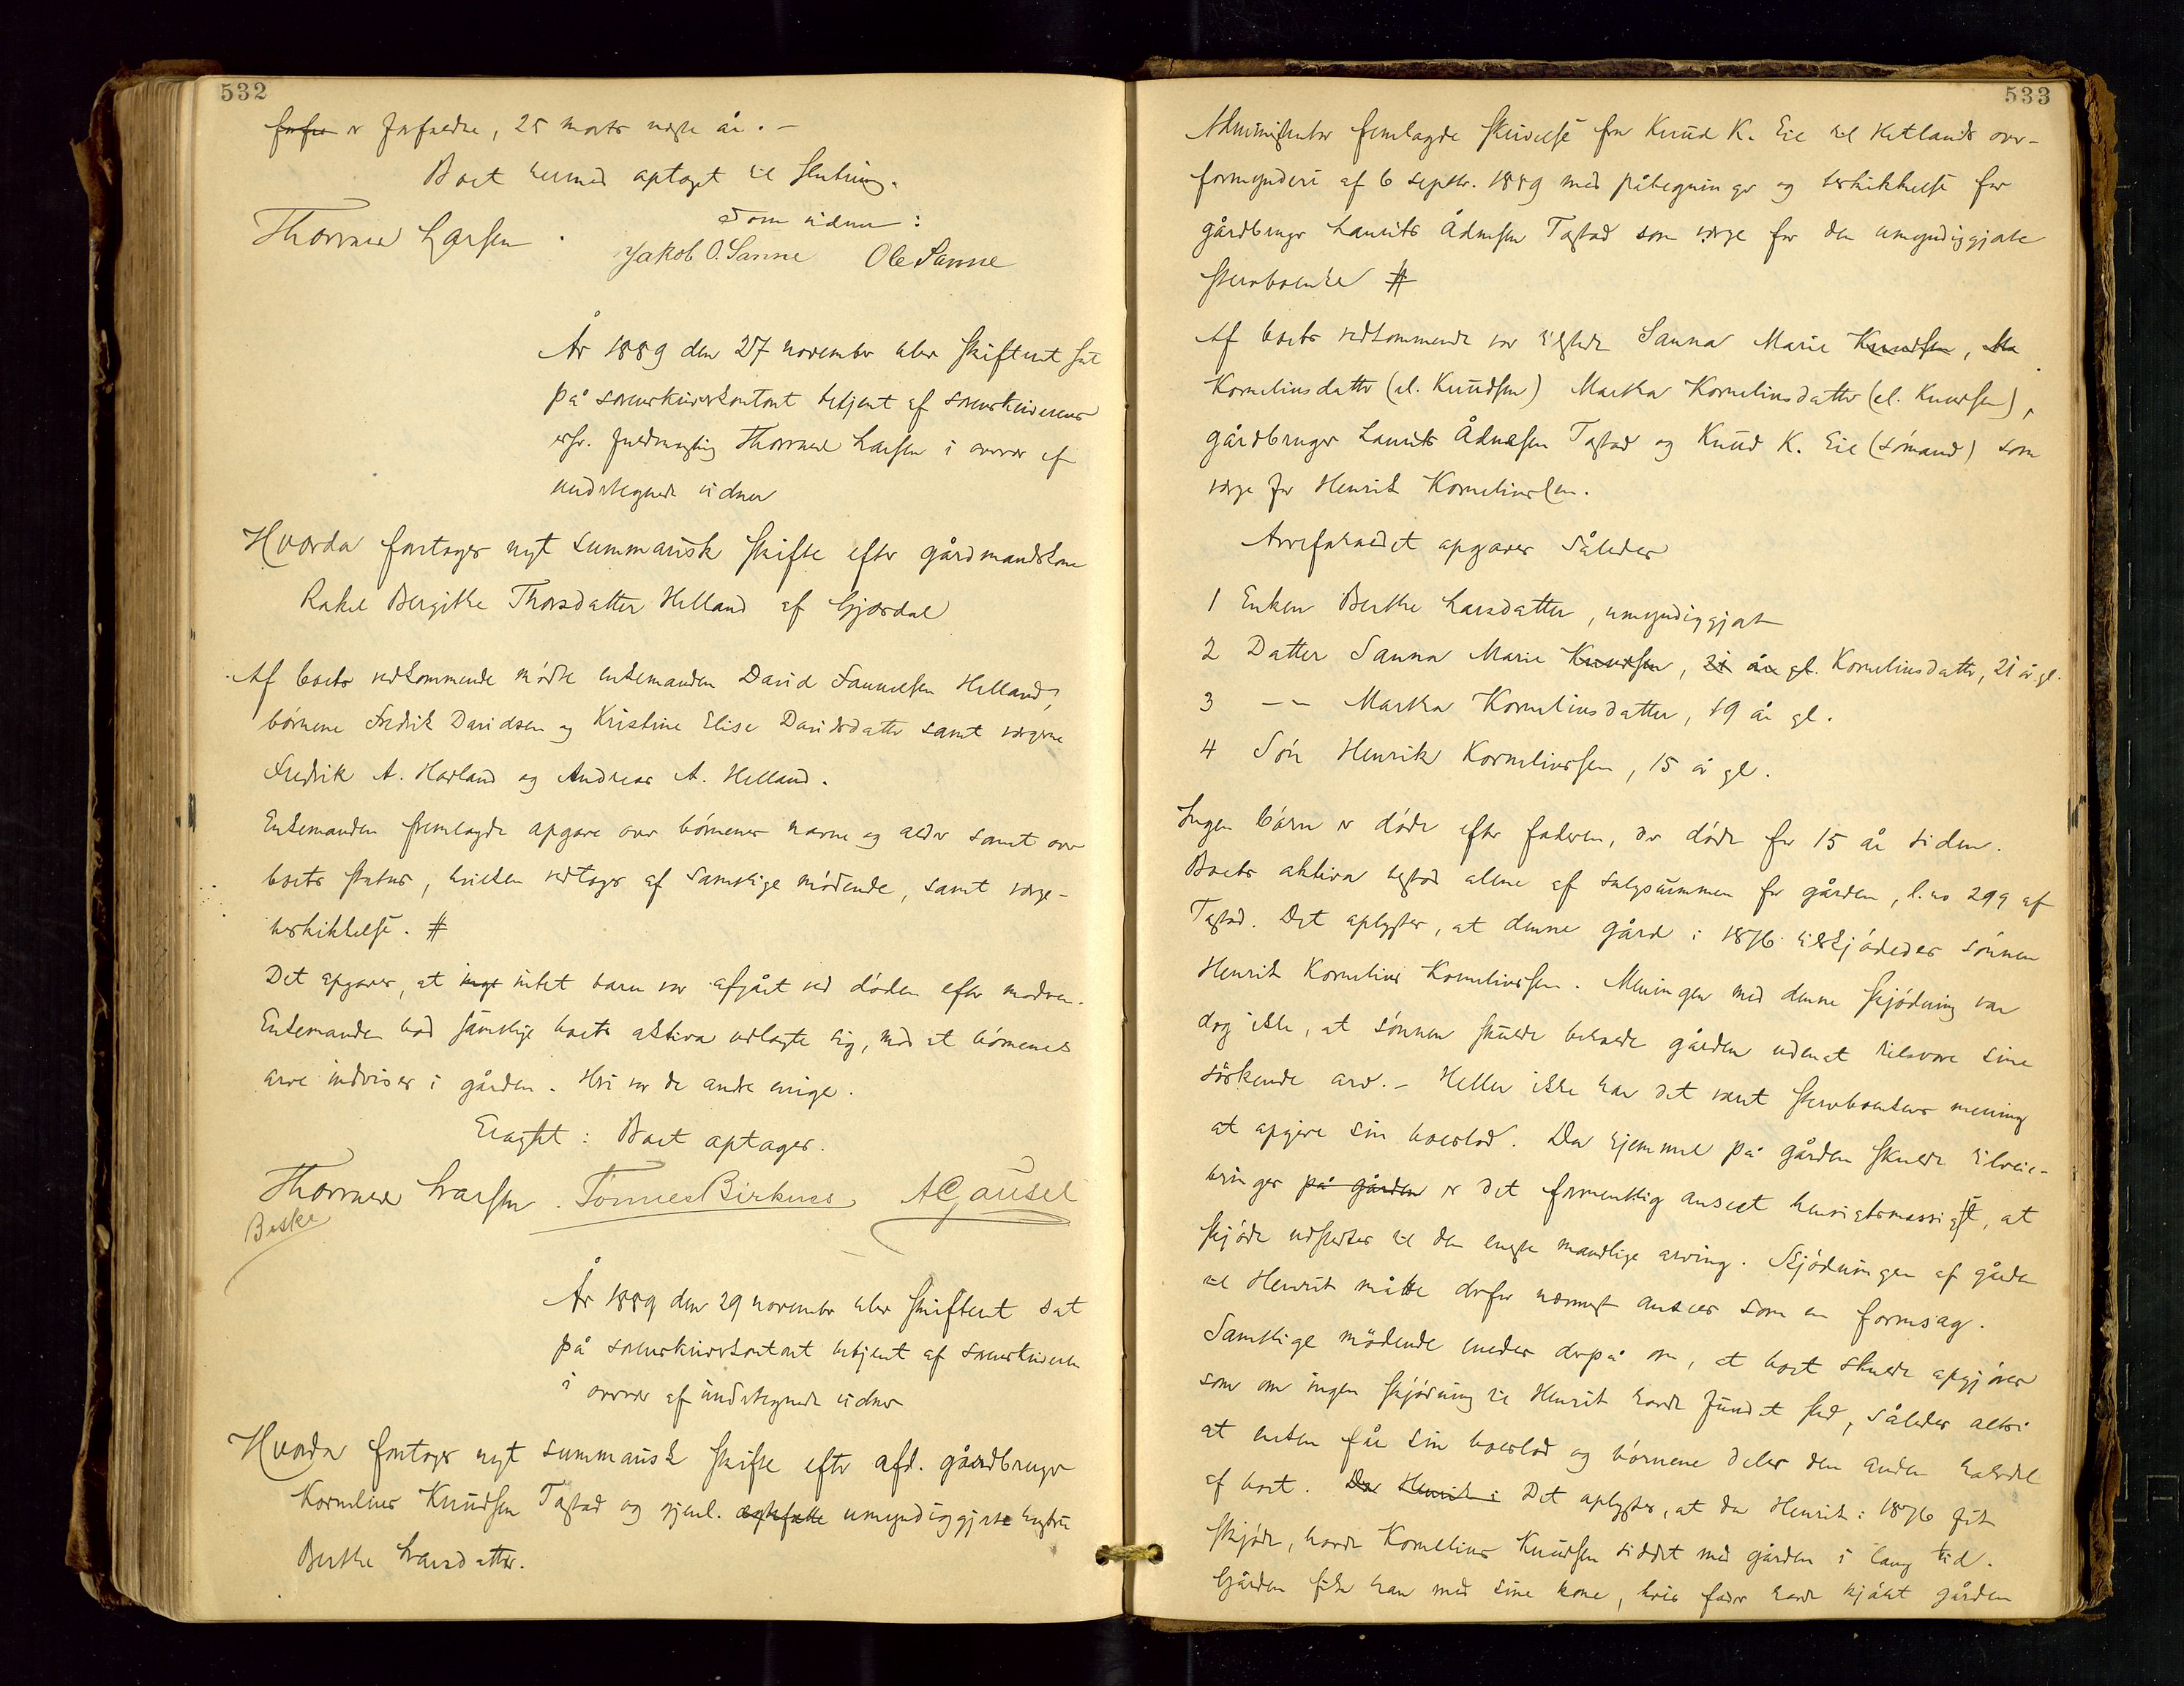 532
forfu er forfaldne, 25 marts næste år. –
Boet hermed optaget til slutning.
Thorvald Larsen. Som vidner:
Jakob O. Sanne Ole Sanne
År 1889 den 27 november blev skifteret sat
på sorenskriverkontoret betjent af sorenskriverens
edsv. fuldmægtig Thorvald Larsen i overvær af
undertegnede vidner
Hvorda foretoges nyt summarisk skifte efter gårdmandskone
Rakel Bergithe Thorsdatter Helland af Gjæsdal
Af boets vedkommende mødte enkemanden David Samuelsen Helland,
børnene Fredrik Davidsen og Kristine Elise Davidsdatter samt værgerne
Fredrik A. Havland og Andreas A. Helland.
Enkemanden fremlagde opgave over børnenes navne og alder samt over
boets status, hvilken vedtoges af samtlige mødende, samt værge-
beskikkelse. #
Det opgaves, at inget intet barn var afgået ved døden efter moderen.
Enkemanden bad samtlige boets aktiva udlagte sig, mod at børnenes
arv indvises i gården. Heri var de andre enige.
Eragtet: Boet optages.
Thorvald Larsen Tønnes Birknes A Gausel
Beske
År 1889 den 29 november blev skifteret sat
på sorenskriverkontoret betjent af sorenskriveren
i overvær af undertegnede vidner
Hvorda foretoges nyt summarisk skifte efter afd. gårdbruger
Kornelius Knudsen Tastad og gjenl. ægtefælle umyndiggjorte hustru
Berthe Larsdatter.
533
Administrator fremlagde skrivelse fra Knud K. Eie til Hetlands over-
formynderi af 6 septbr. 1889 med påtegninger og beskikkelse for
gårdbruger Laurits Ådnesen Tastad som værge for den umyndiggjorte
stervboenke #
Af boets vedkommende var tilstede Sanna Marie Knudsen, Ma
Korneliusdatter (el. Knudsen) Martha Korneliusdatter (el. Knudsen),
gårdbruger Laurits Ådnesen Tastad og Knud K. Eie (sømand) som
værge for Henrik Korneliussen.
Arveforholdet opgaves således
1 Enken Berthe Larsdatter, umyndiggjort
2 Datter Sanna Marie Knudsen, 21 år gl. Korneliusdatter, 21 år gl.
3 –– Martha Korneliusdatter, 19 år gl.
4 Søn Henrik Korneliussen, 15 år gl.
Ingen børn er døde efter faderen, der døde for 15 år siden.
Boets aktiva bestod alene af salgssummen for gården, l. no 299 af
Tastad. Det oplystes, at denne gård i 1876 tilskjødedes sønnen
Henrik Kornelius Korneliussen. Meningen med denne skjødning var
dog ikke, at sønnen skulde beholde gården uden at tilsvare sine
søskende arv. – Heller ikke har det været stervboenkens mening
at opgive sin boeslod. Da hjemmel på gården skulde tilveie-
bringes på gården er det formentlig anseet hensigtsmæssigst, at
skjøde udstedtes til den eneste mandlige arving. Skjødningen af gården
til Henrik måtte derfor nærmest ansees som en formsag.
Samtlige mødende enedes derpå om, at boet skulde opgjøres
som om ingen skjødning til Henrik havde fundet sted, således altså
at enken får sin boeslod og børnene deler den anden halvdel
af boet. Da Henrik i Det oplystes, at da Henrik i 1876 fik
skjøde, havde Kornelius Knudsen siddet med gården i lang tid.
Gården fik han med sine kone, hvis fader havde kjøbt gården